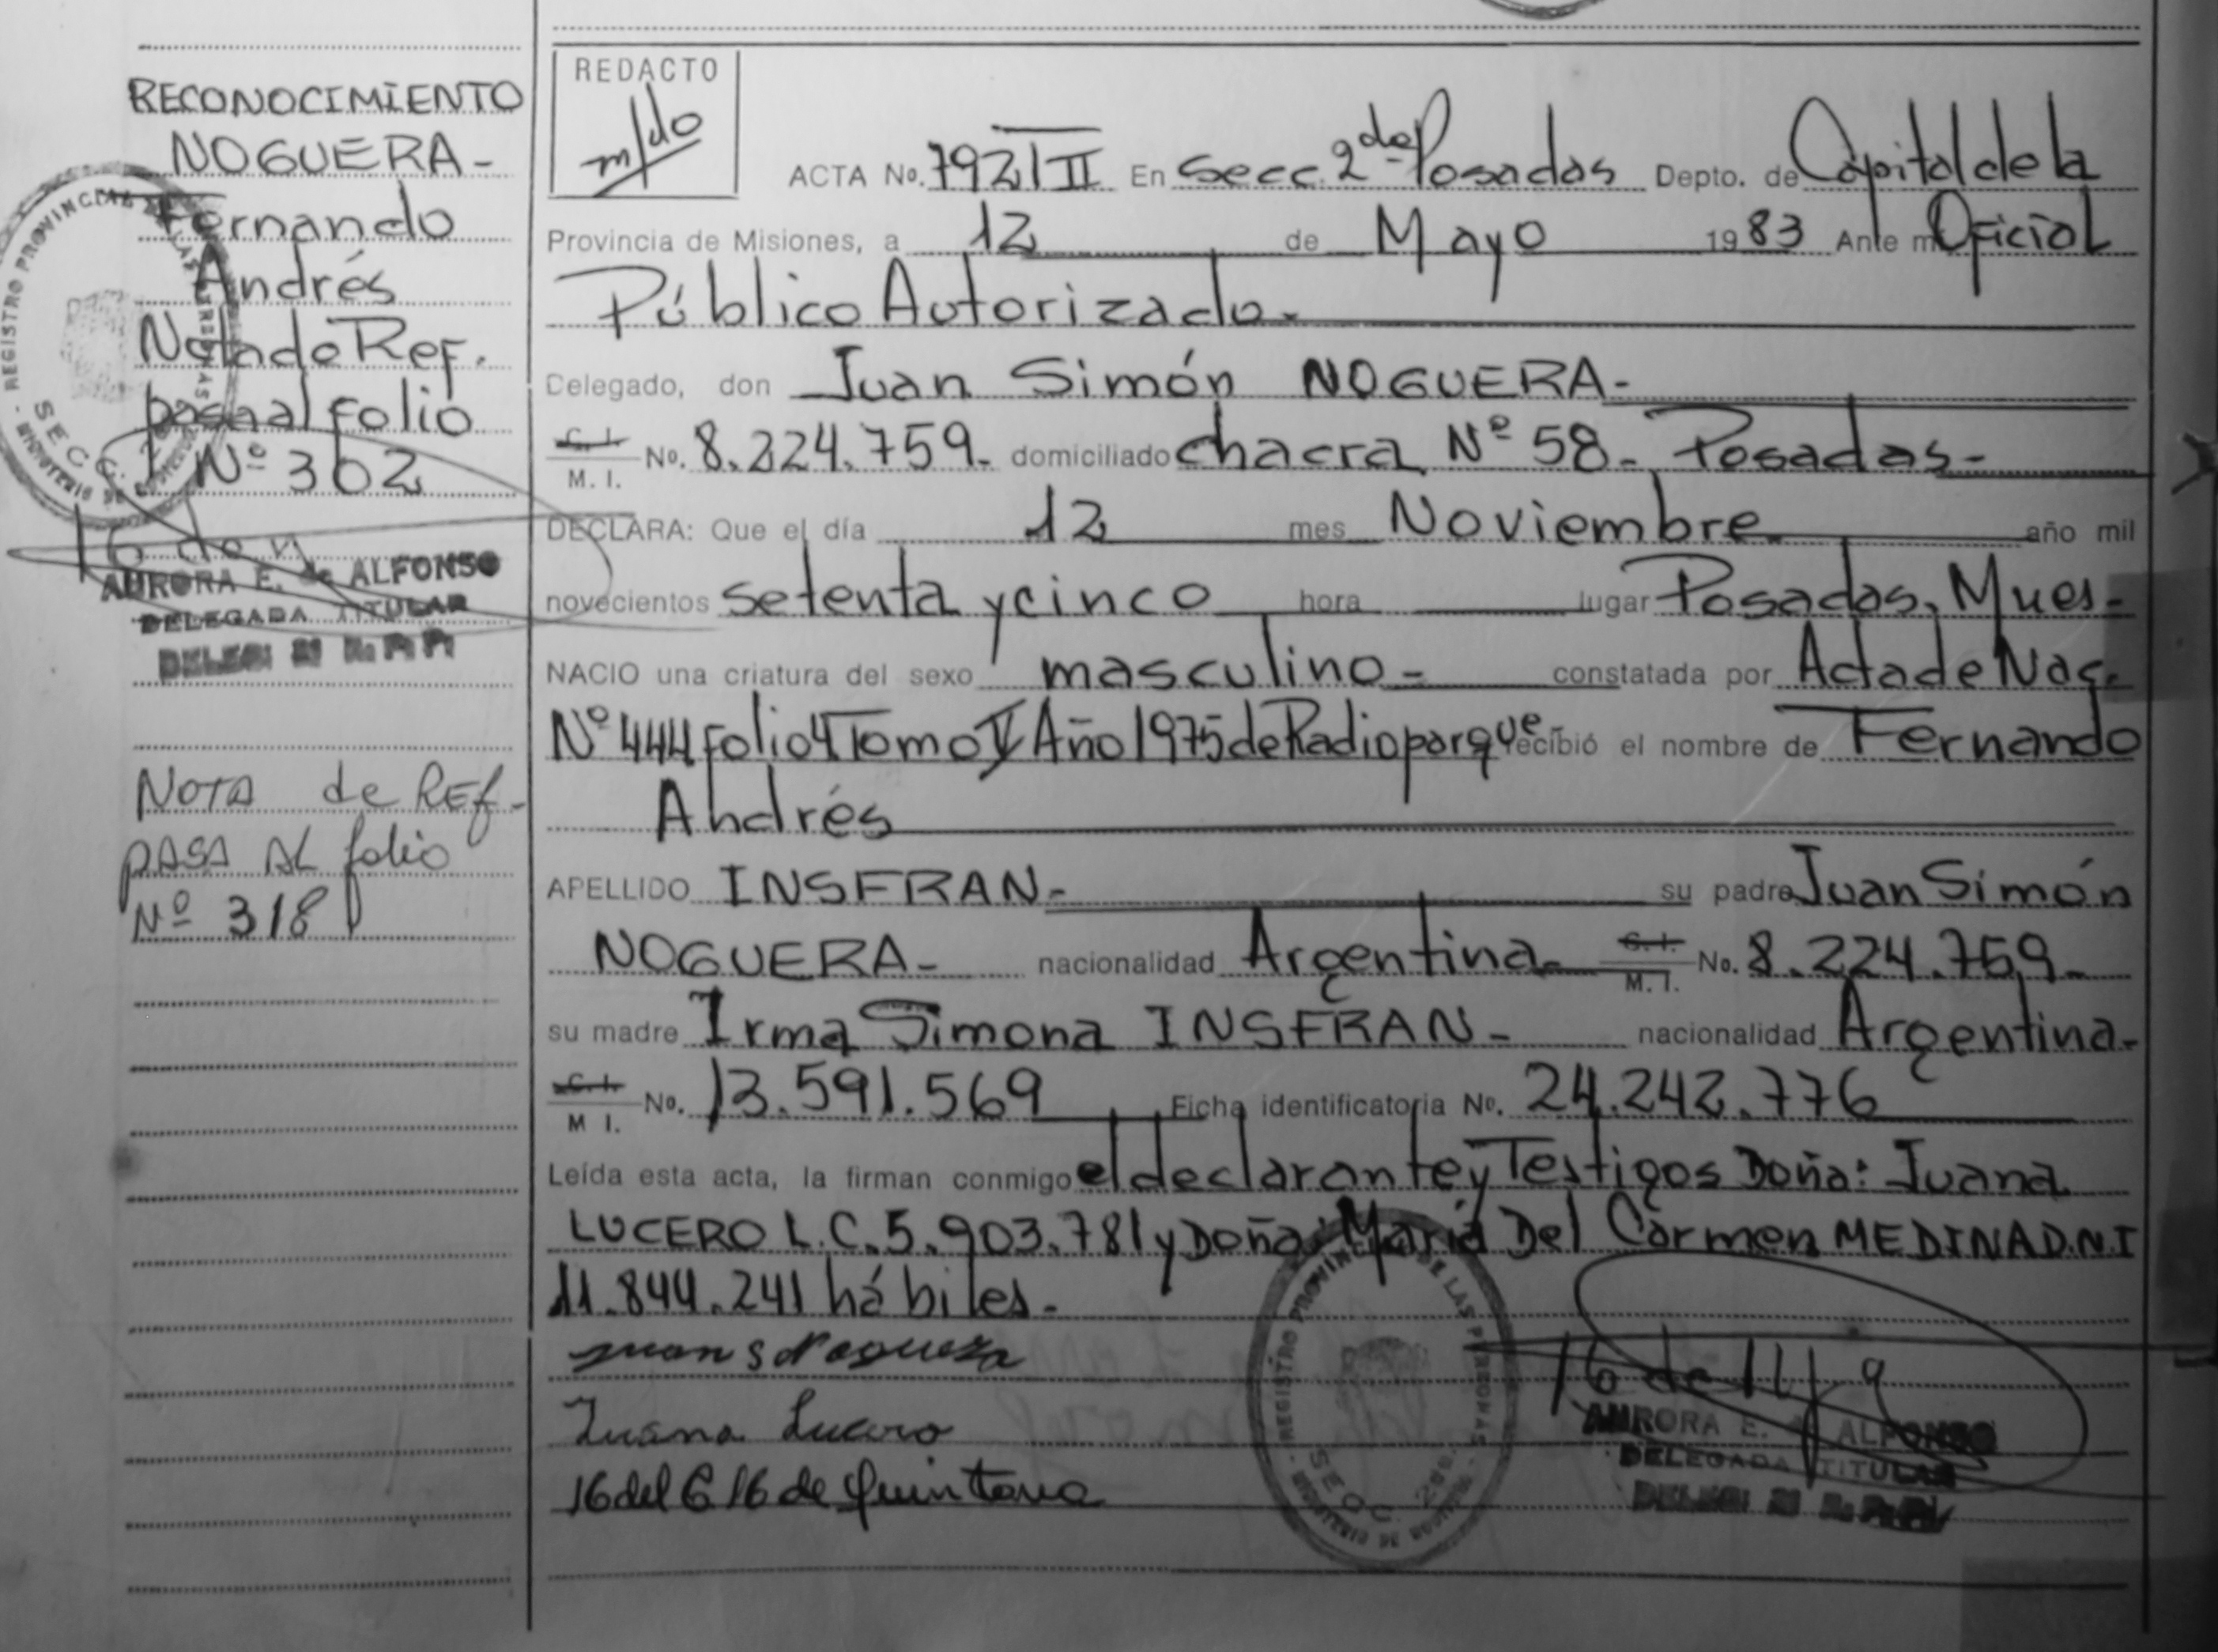 RECONOCIMIENTO
NOGUERA-
Fernando
Andrés
Nota de Ref.
pasa al folio
Nº 302
AURORA E. de ALFONSO
DELEGADA TITULAR
NOTA de REF-
PASA AL folio
Nº 318
REDACTO
m/do
ACTA No. 792 T II En Secc. 2da Posadas Depto. de Capital de la
Provincia de Misiones, a 12 de Mayo 1983 Ante mi Oficial
Público Autorizado.
Delegado, don Juan Simón NOGUERA-
C. I.
M. I. No. 8.224.759- domiciliado chacra Nº 58- Posadas-
DECLARA: Que el día 12 mes Noviembre año mil
novecientos setenta y cinco hora lugar Posadas, Mnes-
NACIO una criatura del sexo masculino- constatada por Acta de Nac.
Nº 444 Folio 4 Tomo V Año 1975 de Radioparque recibió el nombre de Fernando
Andrés
APELLIDO INSFRAN- su padre Juan Simón
NOGUERA- nacionalidad Argentina- C. I.
M. I. No. 8.224.759-
su madre Irma Simona INSFRAN- nacionalidad Argentina-
C. I.
M I. No. 13.591.569 Ficha identificatoria No. 24.242.776
Leída esta acta, la firman conmigo el declarante y Testigos Doña: Juana
LUCERO L.C. 5.903.781 y Doña: María Del Carmen MEDINA D.N.I
11.844.241 hábiles-
Juan S Noguera
Juana Lucero
REGISTRO PROVINCIAL DE LAS PERSONAS
SECC. 2da.
AURORA E. de ALFONSO
DELEGADA TITULAR